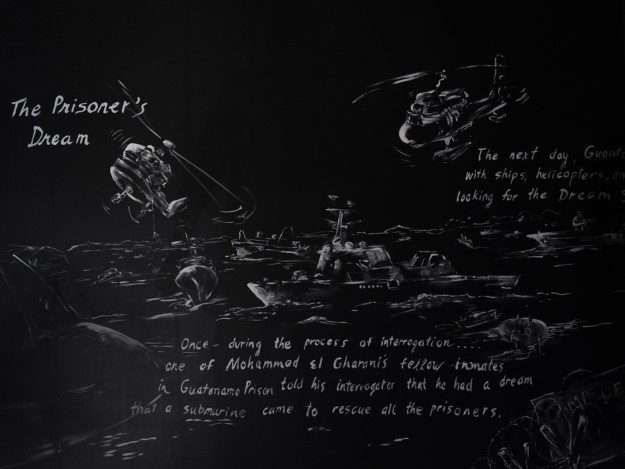 The Prisoner's
Dream
The next day,
with ships, helicopters,
looking for the Dream
Once - during the process of interrogation....
one of Mohammed El Gharani's fellow inmates
in Guatanamo Prison told his interrogator that he had a dream
that a submarine came to rescue all the prisoners.